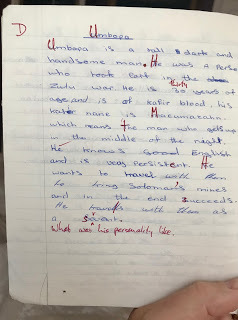 D
Umbopa
Umbopa is a tall dark and
handsome man. He was a Person
who took Part in the
thirty
Zulu war He is 30 years of
age and is of Kafir blood. his
kafir name is Macumazahn.
which means The man who gets up
in the middle of the night.
He knows Good English
and is very Persistent. He
wants to travel with them
to King Solomon's mines
and in the end succeeds.
He travels with them as
a Servant.
What was his personality like.